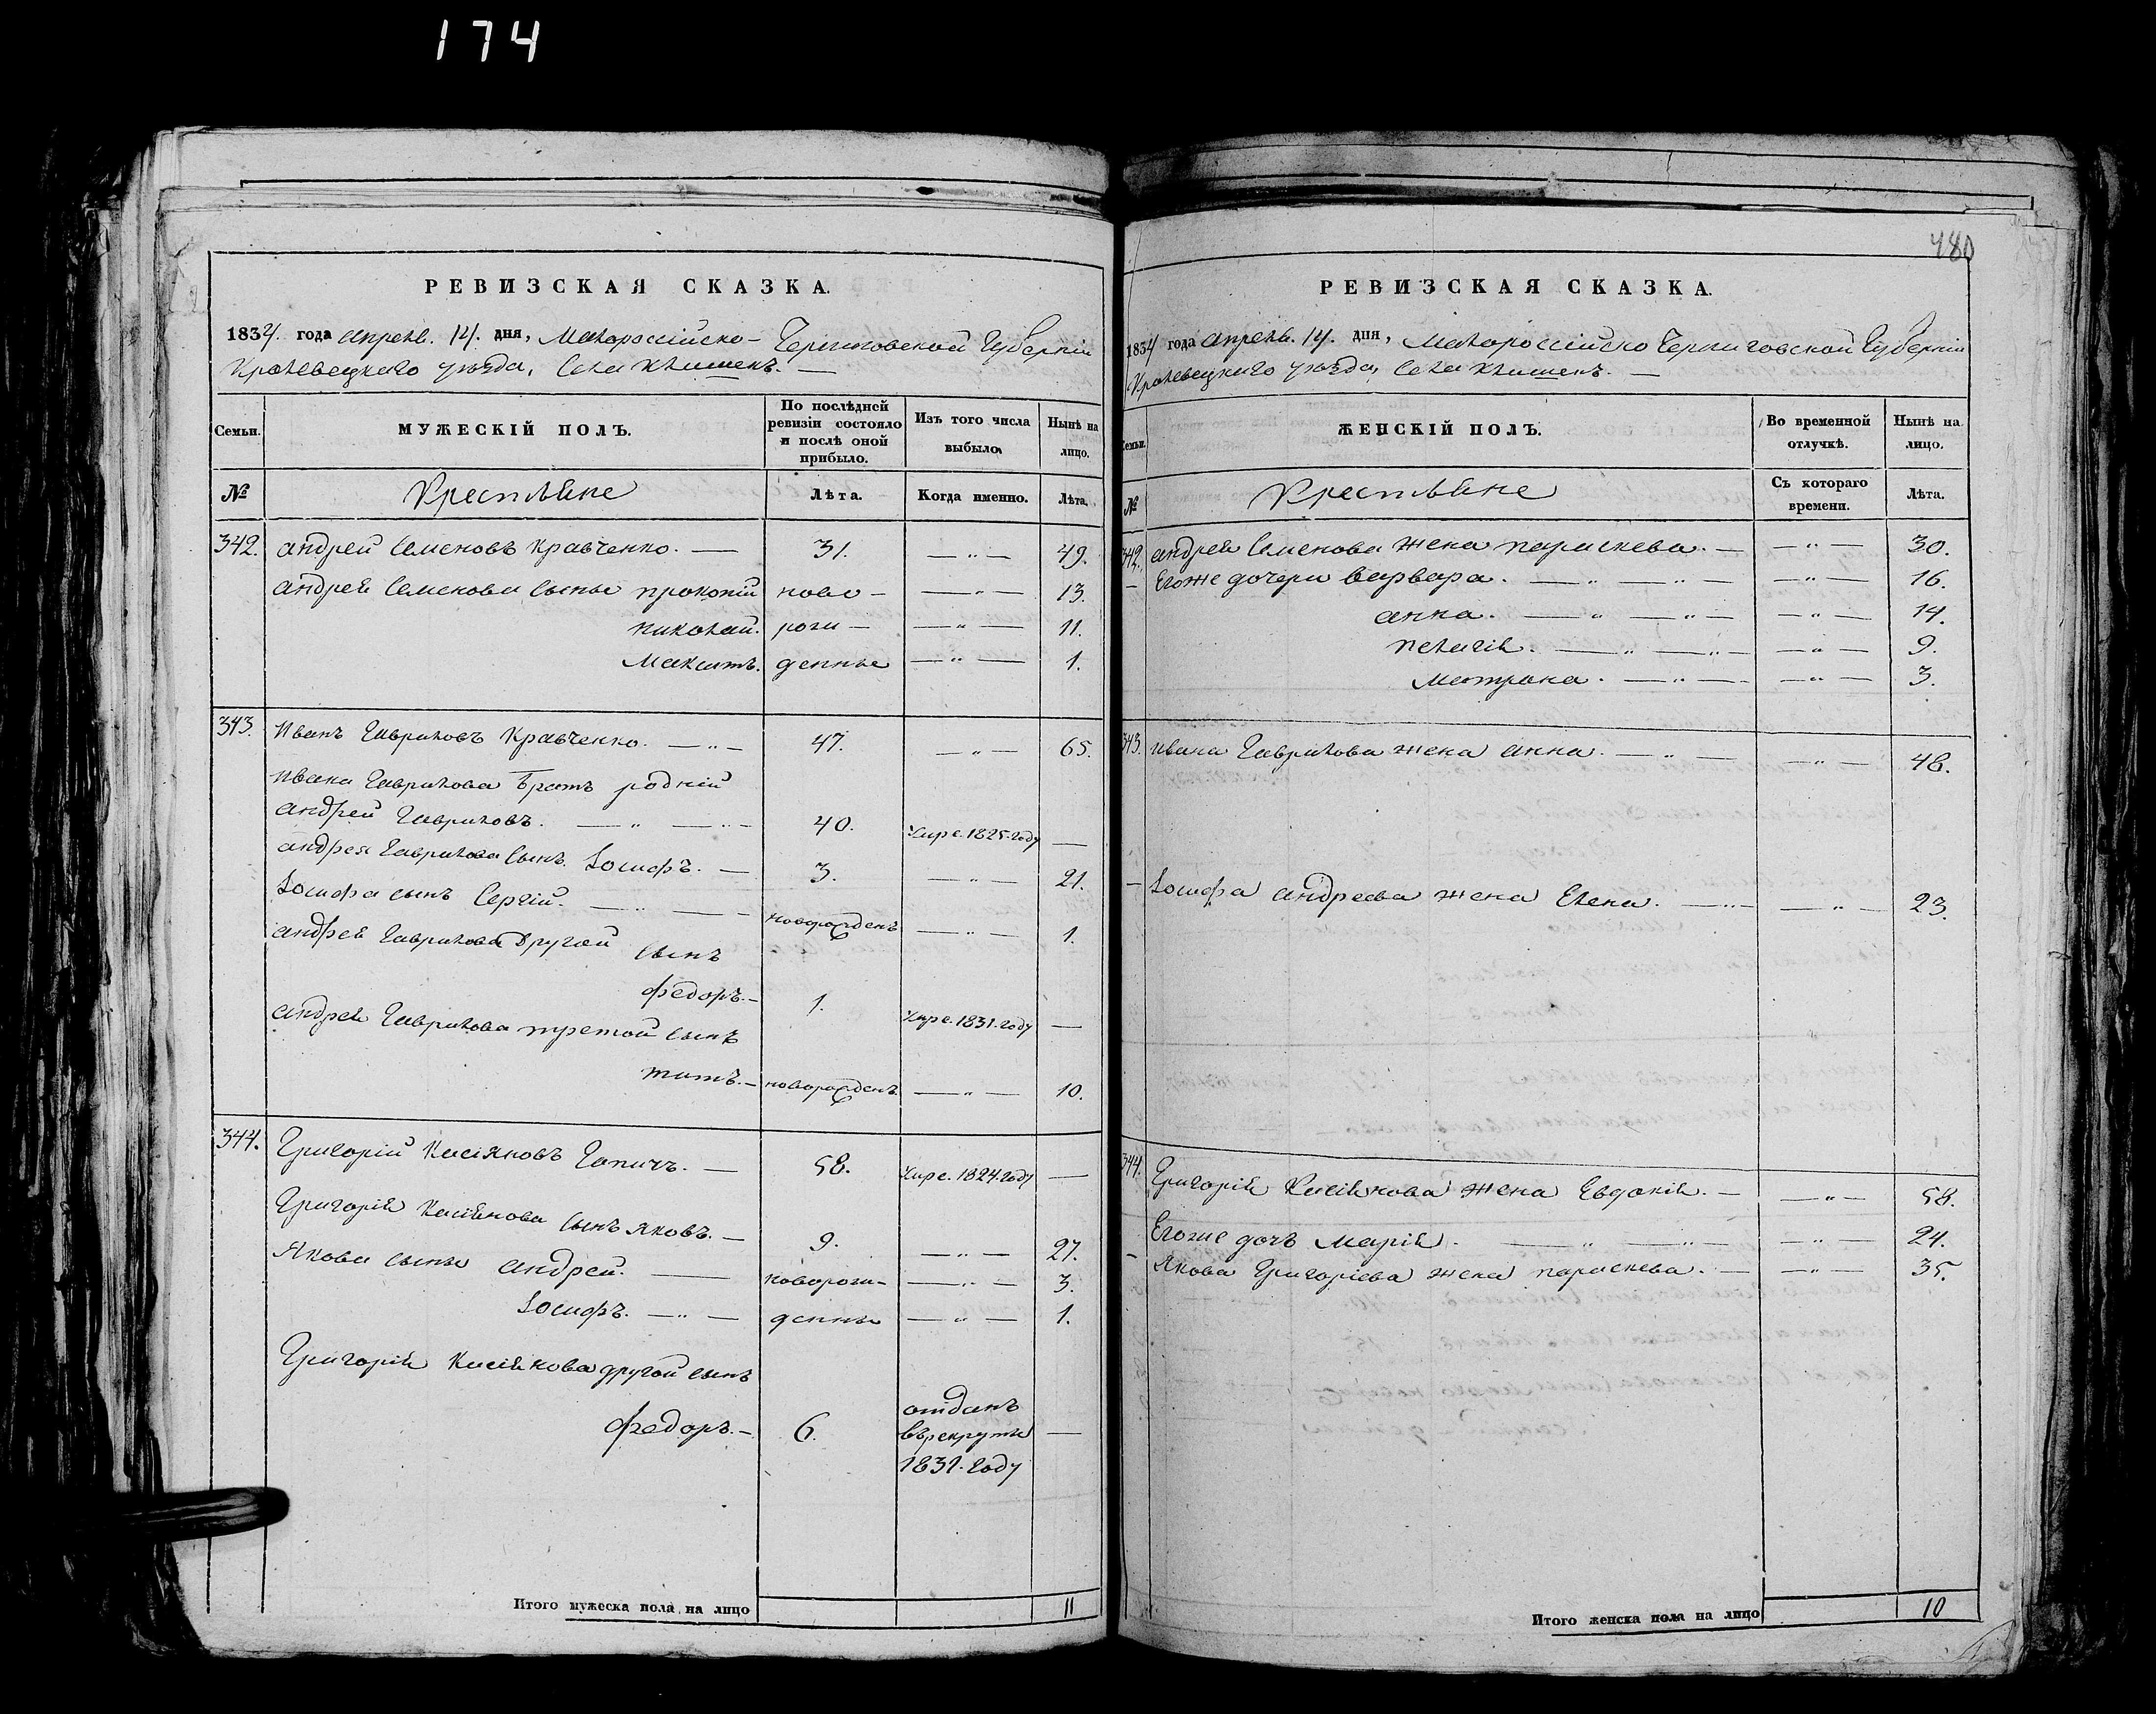 174
480
РЕВИЗСКАЯ СКАЗКА.
1834. года апреля. 14. дня, Малороссійско-Черниговской Губерніи
Кролевецкаго уѣзда, Села Клишекъ. —
Семьи.
МУЖЕСКІЙ ПОЛЪ.
По послѣдней ревизіи состояло и послѣ оной прибыло.
Изъ того числа выбыло.
Нынѣ на лицо.
№
Крестьяне
Лѣта.
Когда именно.
Лѣта.
342. Андрей Семеновъ Кравченко. — 31. — „ — 49.
Андрея Семенова сыны прокопій ново- — „ — 13.
николай. рож- — „ — 11.
Максимъ. денные — „ — 1.
343. Иванъ Гавриловъ Кравченко. — „ — 47. — „ — 65.
Ивана Гаврилова братъ родній
Андрей Гавриловъ. — „ — „ — 40. Умре. 1825. году —
Андрея Гаврилова сынъ Іосифъ. — 3. — „ — 21.
Іосифа сынъ Сергій. — „ — новорожденъ — „ — 1.
Андрея Гаврилова другой сынъ
федоръ. — 1. Умре. 1831. году —
Андрея Гаврилова третой сынъ
титъ. — новорожденъ. — „ — 10.
344. Григорій Касіяновъ Гапичъ. — 58. Умре. 1824. году —
Григорія Касіянова сынъ Яковъ. — 9. — „ — 27.
Якова сыны Андрей. — новорож- — „ — 3.
Іосифъ. — „ — денные — „ — 1.
Григорія Касіянова другой сынъ
федоръ. — 6. отданъ въ рекруты 1831. году —
Итого мужеска пола на лицо 11
РЕВИЗСКАЯ СКАЗКА.
1834 года апреля. 14. дня, Малороссійско Черниговской Губерніи
Кролевецкаго уѣзда, Села Клишекъ. —
Семьи.
ЖЕНСКІЙ ПОЛЪ.
Во временной отлучкѣ.
Нынѣ на лицо.
№
Крестьяне
Съ котораго времени.
Лѣта.
342. Андрея Семенова жена параскева. — — „ — 30.
— Егоже дочери варвара. — „ — „ — — „ — 16.
анна. — „ — „ — — „ — 14.
пелагія. — „ — „ — — „ — 9.
Матрона. — „ — — „ — 3.
343. Ивана Гаврилова жена анна. — „ — — „ — 48.
— Іосифа Андреева жена Елена. — „ — — „ — 23.
344. Григорія Касіянова жена Евдокія. — — „ — 58.
Егоже дочь Марія. — „ — „ — „ — 24.
— Якова Григоріева жена параскева. — — „ — 35.
Итого женска пола на лицо 10